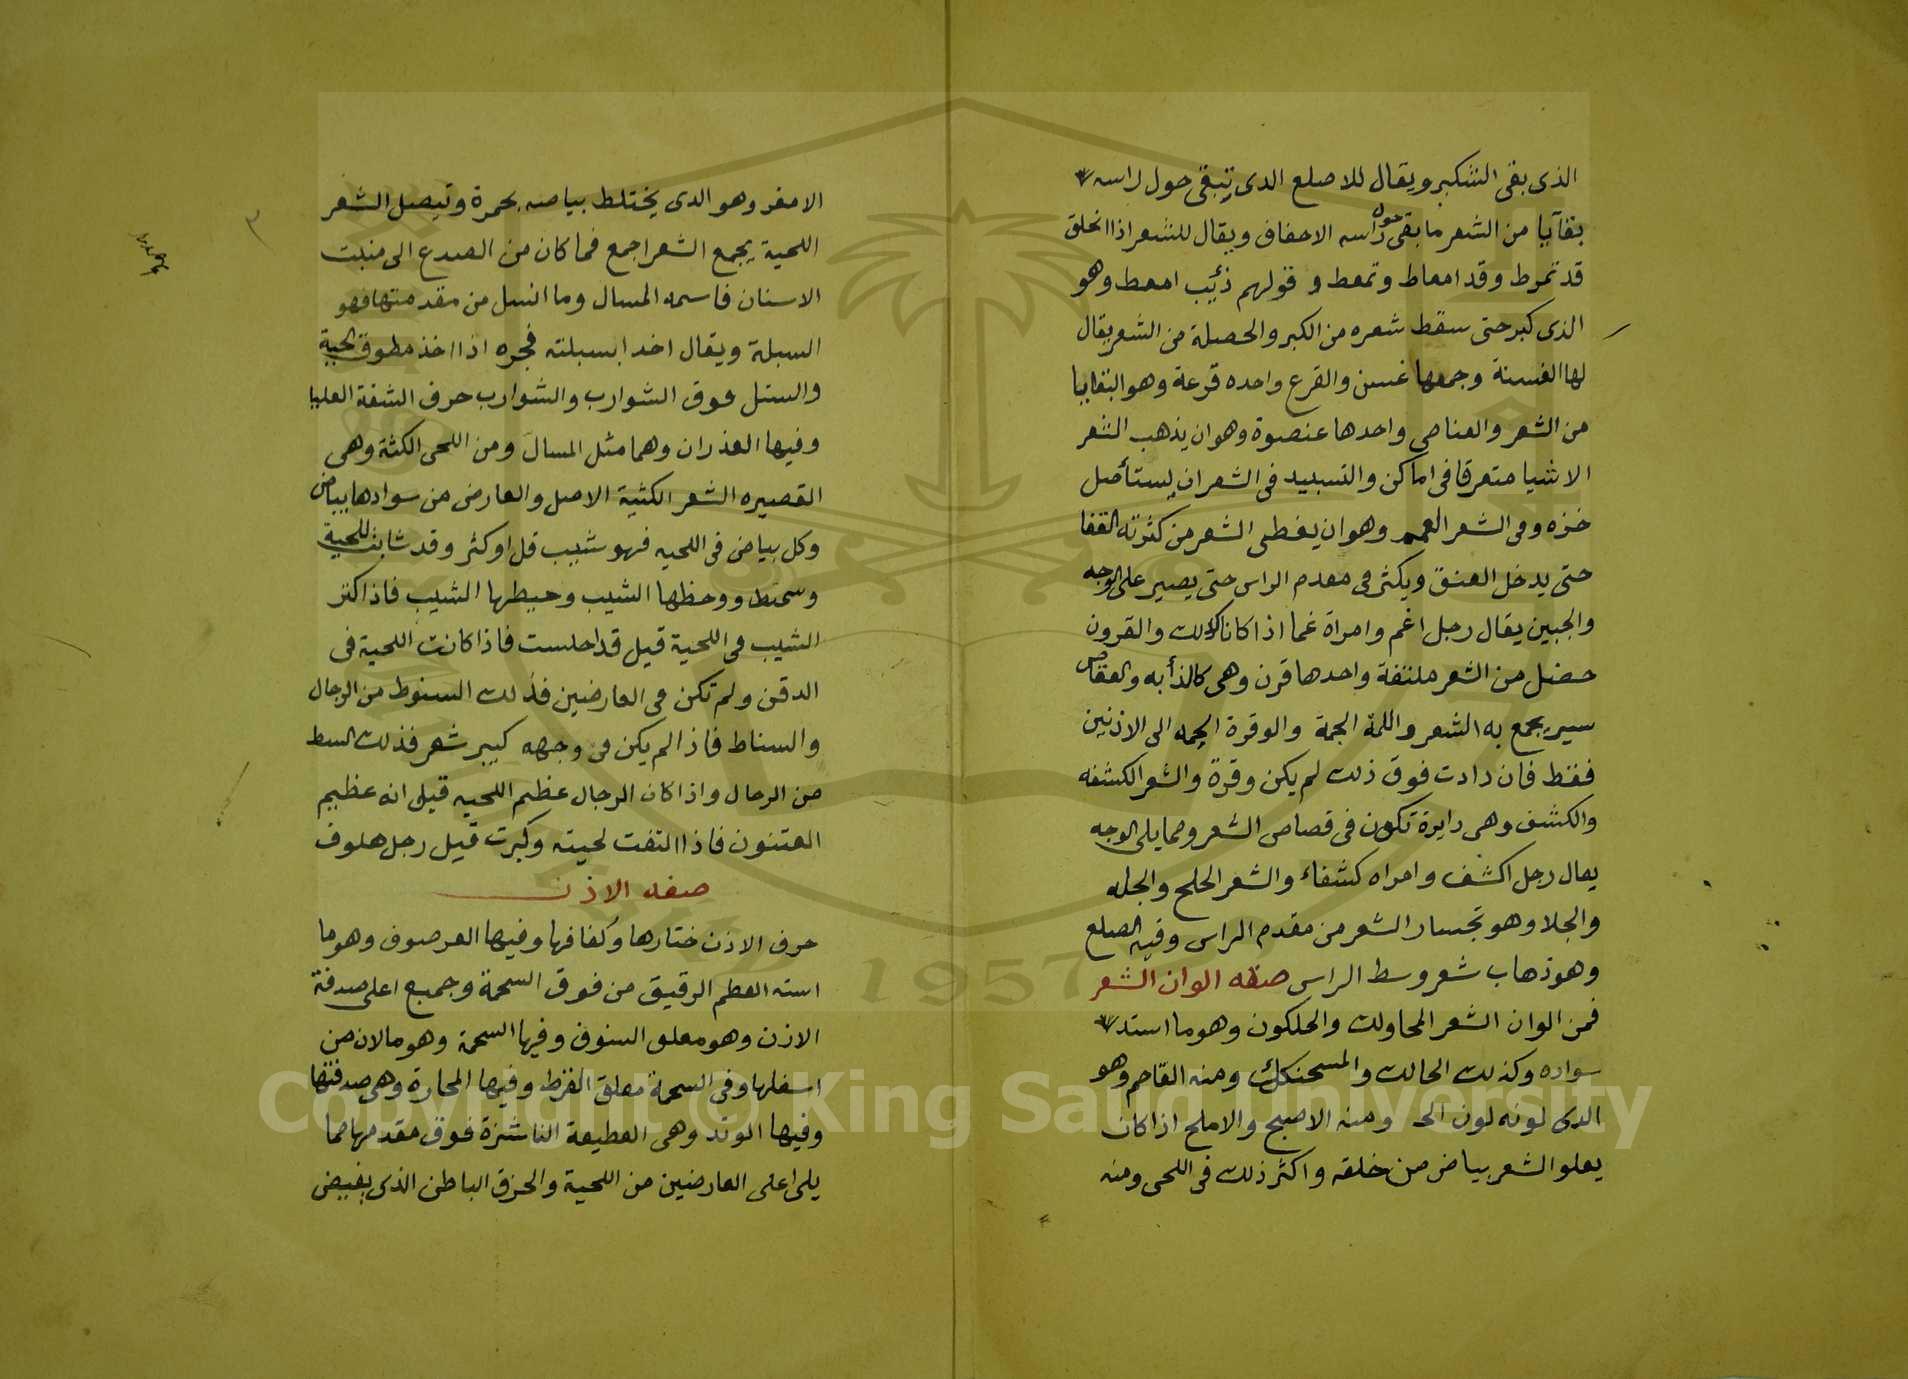 الذى بقى الشكير ويقال للاصلع الدى تبقى حول راسه
بقايا من الشعر ما بقى حول راسه الاحفاف ويقال للشعر اذا انحلق
قد تمرط وقد امعاط وتمعط و قولهم ذئيب امعط وهو
الذى كبر حتى سقط شعره من الكبر والحصلة من الشعر يقال
لها الغسنة وجمعها غسن والقرع واحده قرعة وهو البقايا
من الشعر والعناصى واحدها عنصوة وهو ان يذهب الشعر
الا شيا متعرقا فى اماكن والتسبيد فى الشعر ان يستأصل
جزه وفى الشعر الغمم وهو ان يغطى الشعر من كثرته القفا
حتى يدخل العنق ويكثر فى مقدم الراس حتى يصير على الوجه
والجبين يقال رجل اغم وامراة غما اذا كانا كذلك والقرون
خصل من الشعر ملتفة واحدها قرن وهى كالذأبه والعقاص
سير يجمع به الشعر واللمة الجمة والوقرة الجمه الى الاذنين
فقط فان دادت فوق ذلك لم يكن وقرة والشعر الكشفه
والكشف وهى دايرة تكون فى قصاص الشعر ومما يلى الوجه
يقال رجل اكشف وامراه كشفاء والشعر الجلح والجله
والجلا وهو تجسار الشعر من مقدم الراس وفيه الصلع
وهو ذهاب شعر وسط الراس صفه الوان الشعر
فمن الوان الشعر المحاولك والحلكون وهو ما استد
سواده وكذلك الحالك والمسحنكك ومنه القاحم وهو
الدى لونه لون الحـ ومنه الاصبح والاملح اذا كان
يعلو الشعر بياض من خلقه واكثر ذلك فى اللحى ومنه
٣
الامغر وهو الدى يختلط بياصه بحمرة وتيصل الشعر
اللحية يجمع الشعر اجمع فما كان من الصدع الى منبت
الاسنان فاسمه المسال وما انسل من مقدمتها فهو
السبلة ويقال اخد ابسبلته فجره اذا اخذ مطوق لحية
والستل فوق الشوارب والشوارب حرف الشفة العليا
وفيها العذران وهما مثل المسال ومن اللحى الكثة وهى
القصيره الشعر الكثية الاصل والعارض من سوادها بياض
وكل بياض فى اللحيه فهو شيب قل او كثر وقد شابت اللحية
وسمط ووحظها الشيب وحيطها الشيب فاذا كثر
الشيب فى اللحية قيل قد احلست فاذا كانت اللحية فى
الدقن ولم تكن فى العارضين فذلك السنوط من الرجال
والسناط فاذا لم يكن فى وجهه كبير شعر فذلك السط
من الرحال واذا كان الرجال عظيم اللحيه قيل انه عظيم
العثنون فاذا التفت لحيته وكبرت قيل رجل هلوف
صفه الاذن
حرف الاذن ختارها وكفافها وفيها العرصوف وهو ما
استه العظم الرقيق من فوق السحمة وجميع اعلى صدفة
الاذن وهو معلق السنوف وفيها السحمة وهو مالان من
اسفلها وفى السحمة معلق القرط وفيها المحارة وهى صدفتها
وفيها الوتد وهى العطيعة الناشزة فوق مقدمها مما
يلى اعلى العارضين من اللحية والخرق الباطن الذى يفيض
Copyright © King Saud University
1957